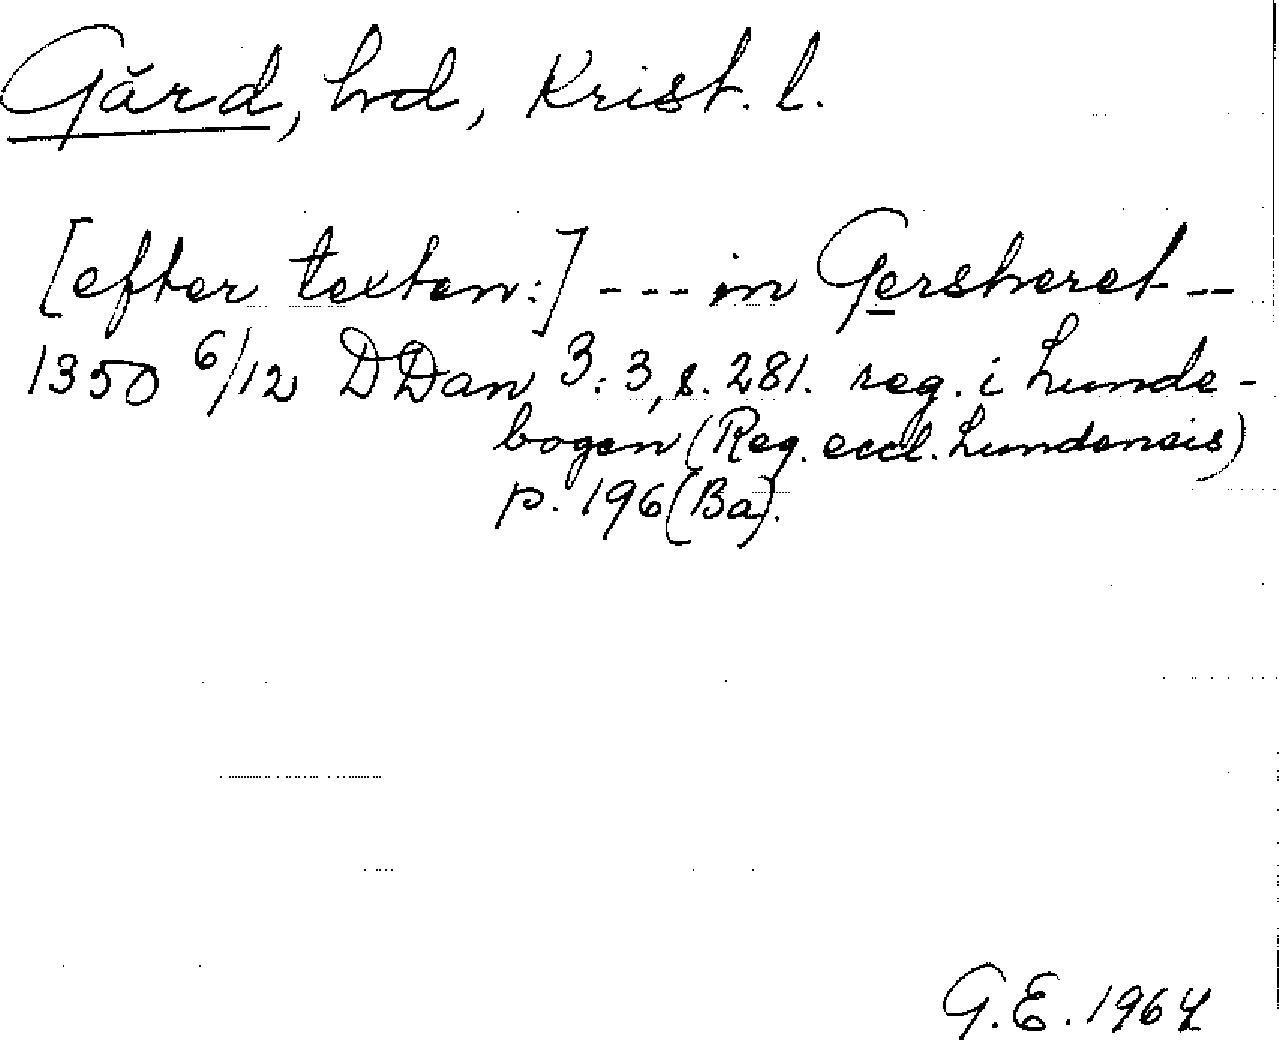 Gărd, hrd, Krist. l.
[efter texten:] --- in Gersheret --
1350 6/12 DDan 3:3, s. 281. reg. i Lunde-
bogen (Reg. eccl. Lundensis)
p. 196 (Ba).
G.E. 1964